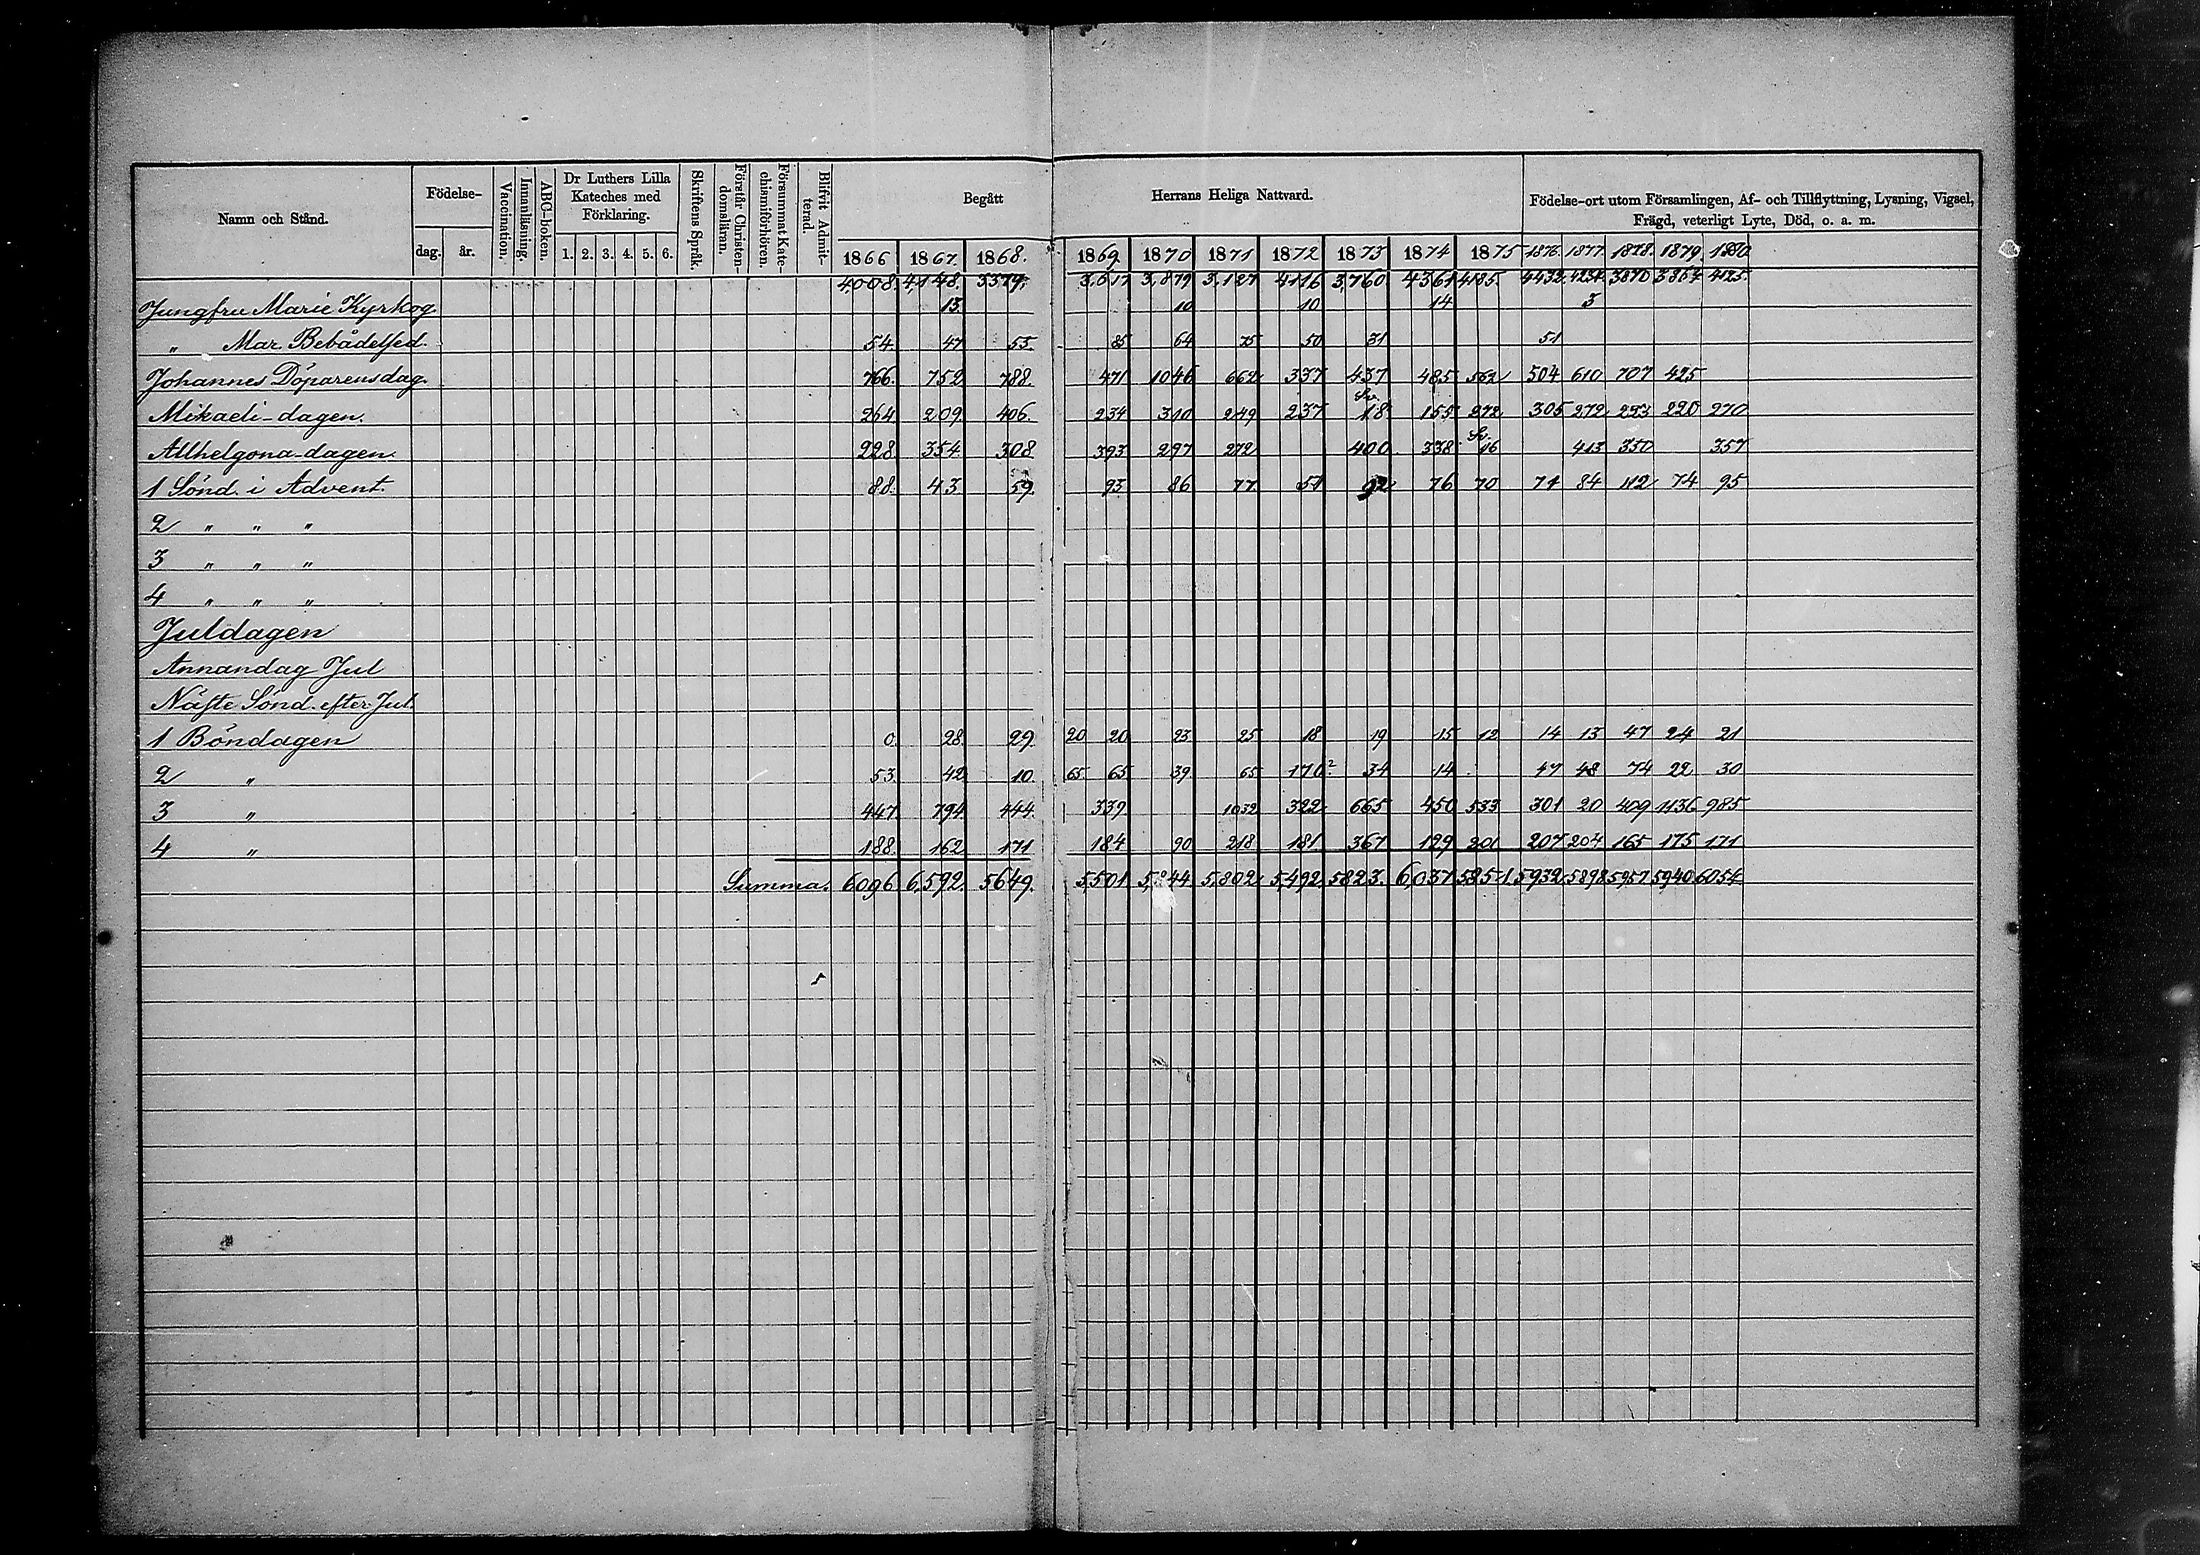 Namn och Stånd. Födelse- Vaccination. Innanläsning. ABC-boken. Dr Luthers Lilla Kateches med Förklaring. Skriftens Språk. Förstår Christendomsläran. Försummat Katechismiförhören. Blifvit Admitterad. Begått Herrans Heliga Nattvard. Födelse-ort utom Församlingen, Af- och Tillflyttning, Lysning, Vigsel, Frägd, veterligt Lyte, Död, o. a. m.
dag. år. 1. 2. 3. 4. 5. 6. 1866 1867. 1868. 1869. 1870 1871 1872 1873 1874 1875 1876. 1877. 1878. 1879. 1880
4,008. 4,148. 3379. 3,617 3,879 3,127 4116 3,760 4361 4185. 4432. 4231. 3870 3863 4125.
Jungfru Marie Kyrkog. 13. 10 10 14 3
" Mar. Bebådelsed. 54. 47 55. 85 64 75 50 31 51
Johannes Döparensdag. 766. 752 788. 471 1046 662 337 437 485 562 504 610 707 425
Mikaeli-dagen. 264 209 406. 234 310 249 237 Sv. 18 155 272 305 272 223 220 270
Allhelgona-dagen. 228 354 308 393 297 272 400 338 Sv. 16 413 350 357
1 Sönd. i Advent. 88. 43 59. 93 86 77 51 92 76 70 71 84 112 74 95
2 " " "
3 " " "
4 " " "
Juldagen
Annandag Jul
Näste Sönd. efter Jul.
1 Böndagen 0. 28 29. 20 20 23 25 18 19 15 12 14 13 47 24 21
2 " 53. 42 10. 65. 65 39. 65 170 2. 34 14 47 48 74 22 30
3 " 447. 794 444. 339 1032 322 665 450 533 301 20 409 1136 985
4 " 188. 162 171 184 90 218 181 367 129 201 207 204 165 175 171
Summa. 6096 6,592. 5649. 5,501 5,844 5,802 5,492 5823. 6,037 5851. 5932 5898 5957 5940 6054